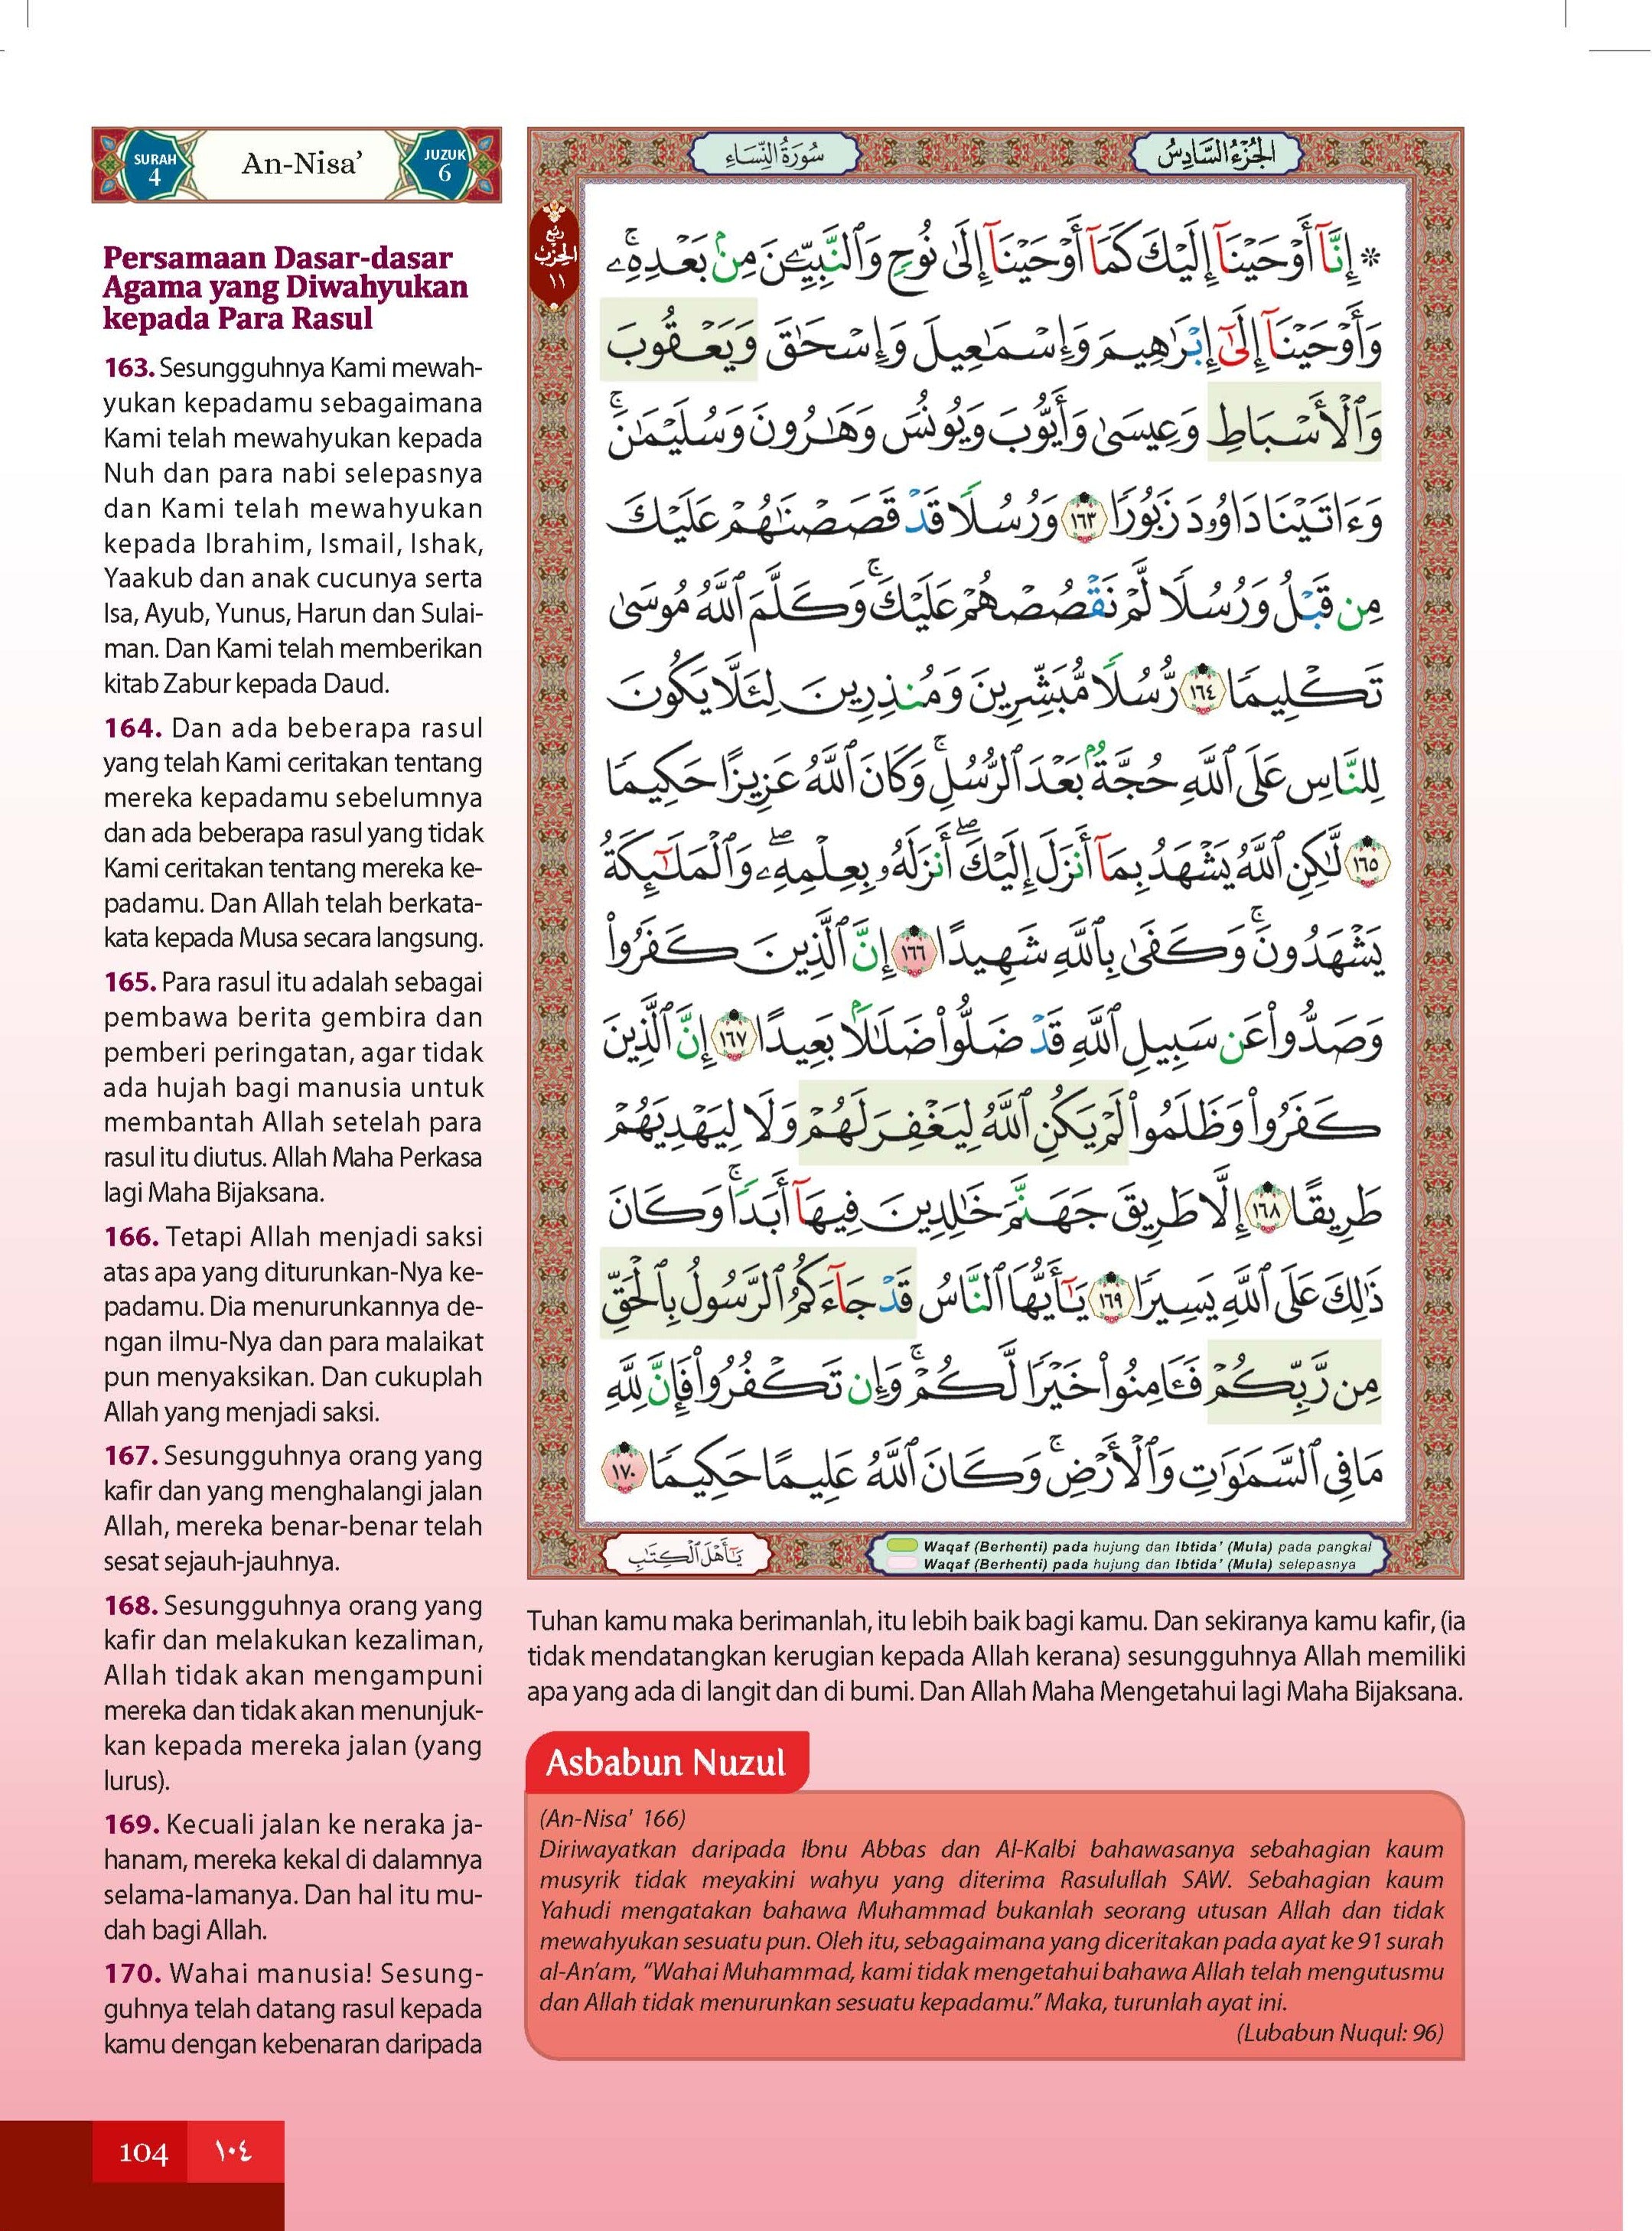 SURAH
4
An-Nisa’
JUZUK
6
Persamaan Dasar-dasar
Agama yang Diwahyukan
kepada Para Rasul
163. Sesungguhnya Kami mewah-
yukan kepadamu sebagaimana
Kami telah mewahyukan kepada
Nuh dan para nabi selepasnya
dan Kami telah mewahyukan
kepada Ibrahim, Ismail, Ishak,
Yaakub dan anak cucunya serta
Isa, Ayub, Yunus, Harun dan Sulai-
man. Dan Kami telah memberikan
kitab Zabur kepada Daud.
164. Dan ada beberapa rasul
yang telah Kami ceritakan tentang
mereka kepadamu sebelumnya
dan ada beberapa rasul yang tidak
Kami ceritakan tentang mereka ke-
padamu. Dan Allah telah berkata-
kata kepada Musa secara langsung.
165. Para rasul itu adalah sebagai
pembawa berita gembira dan
pemberi peringatan, agar tidak
ada hujah bagi manusia untuk
membantah Allah setelah para
rasul itu diutus. Allah Maha Perkasa
lagi Maha Bijaksana.
166. Tetapi Allah menjadi saksi
atas apa yang diturunkan-Nya ke-
padamu. Dia menurunkannya de-
ngan ilmu-Nya dan para malaikat
pun menyaksikan. Dan cukuplah
Allah yang menjadi saksi.
167. Sesungguhnya orang yang
kafir dan yang menghalangi jalan
Allah, mereka benar-benar telah
sesat sejauh-jauhnya.
168. Sesungguhnya orang yang
kafir dan melakukan kezaliman,
Allah tidak akan mengampuni
mereka dan tidak akan menunjuk-
kan kepada mereka jalan (yang
lurus).
169. Kecuali jalan ke neraka ja-
hanam, mereka kekal di dalamnya
selama-lamanya. Dan hal itu mu-
dah bagi Allah.
170. Wahai manusia! Sesung-
guhnya telah datang rasul kepada
kamu dengan kebenaran daripada
الجُزْءُ السَّادِسُ
سُورَةُ النِّسَاءِ
ربع
الحزب
١١
* إِنَّآ أَوْحَيْنَآ إِلَيْكَ كَمَآ أَوْحَيْنَآ إِلَىٰ نُوحٍ وَٱلنَّبِيِّـۧنَ مِنۢ بَعْدِهِۦۚ
وَأَوْحَيْنَآ إِلَىٰٓ إِبْرَٰهِيمَ وَإِسْمَـٰعِيلَ وَإِسْحَـٰقَ وَيَعْقُوبَ
وَٱلْأَسْبَاطِ وَعِيسَىٰ وَأَيُّوبَ وَيُونُسَ وَهَـٰرُونَ وَسُلَيْمَـٰنَۚ
وَءَاتَيْنَا دَاوُۥدَ زَبُورًا ١٦٣ وَرُسُلًا قَدْ قَصَصْنَـٰهُمْ عَلَيْكَ
مِن قَبْلُ وَرُسُلًا لَّمْ نَقْصُصْهُمْ عَلَيْكَۚ وَكَلَّمَ ٱللَّهُ مُوسَىٰ
تَكْلِيمًا ١٦٤ رُّسُلًا مُّبَشِّرِينَ وَمُنذِرِينَ لِئَلَّا يَكُونَ
لِلنَّاسِ عَلَى ٱللَّهِ حُجَّةٌۢ بَعْدَ ٱلرُّسُلِۚ وَكَانَ ٱللَّهُ عَزِيزًا حَكِيمًا
١٦٥ لَّـٰكِنِ ٱللَّهُ يَشْهَدُ بِمَآ أَنزَلَ إِلَيْكَۖ أَنزَلَهُۥ بِعِلْمِهِۦۖ وَٱلْمَلَـٰٓئِكَةُ
يَشْهَدُونَۚ وَكَفَىٰ بِٱللَّهِ شَهِيدًا ١٦٦ إِنَّ ٱلَّذِينَ كَفَرُوا۟
وَصَدُّوا۟ عَن سَبِيلِ ٱللَّهِ قَدْ ضَلُّوا۟ ضَلَـٰلًۢا بَعِيدًا ١٦٧ إِنَّ ٱلَّذِينَ
كَفَرُوا۟ وَظَلَمُوا۟ لَمْ يَكُنِ ٱللَّهُ لِيَغْفِرَ لَهُمْ وَلَا لِيَهْدِيَهُمْ
طَرِيقًا ١٦٨ إِلَّا طَرِيقَ جَهَنَّمَ خَـٰلِدِينَ فِيهَآ أَبَدًاۚ وَكَانَ
ذَٰلِكَ عَلَى ٱللَّهِ يَسِيرًا ١٦٩ يَـٰٓأَيُّهَا ٱلنَّاسُ قَدْ جَآءَكُمُ ٱلرَّسُولُ بِٱلْحَقِّ
مِن رَّبِّكُمْ فَـَٔامِنُوا۟ خَيْرًا لَّكُمْۚ وَإِن تَكْفُرُوا۟ فَإِنَّ لِلَّهِ
مَا فِى ٱلسَّمَـٰوَٰتِ وَٱلْأَرْضِۚ وَكَانَ ٱللَّهُ عَلِيمًا حَكِيمًا ١٧٠
يَـٰٓأَهْلَ ٱلْكِتَـٰبِ
Waqaf (Berhenti) pada hujung dan Ibtida’ (Mula) pada pangkal
Waqaf (Berhenti) pada hujung dan Ibtida’ (Mula) selepasnya
Tuhan kamu maka berimanlah, itu lebih baik bagi kamu. Dan sekiranya kamu kafir, (ia
tidak mendatangkan kerugian kepada Allah kerana) sesungguhnya Allah memiliki
apa yang ada di langit dan di bumi. Dan Allah Maha Mengetahui lagi Maha Bijaksana.
Asbabun Nuzul
(An-Nisa' 166)
Diriwayatkan daripada Ibnu Abbas dan Al-Kalbi bahawasanya sebahagian kaum
musyrik tidak meyakini wahyu yang diterima Rasulullah SAW. Sebahagian kaum
Yahudi mengatakan bahawa Muhammad bukanlah seorang utusan Allah dan tidak
mewahyukan sesuatu pun. Oleh itu, sebagaimana yang diceritakan pada ayat ke 91 surah
al-An’am, “Wahai Muhammad, kami tidak mengetahui bahawa Allah telah mengutusmu
dan Allah tidak menurunkan sesuatu kepadamu.” Maka, turunlah ayat ini.
(Lubabun Nuqul: 96)
104
١٠٤